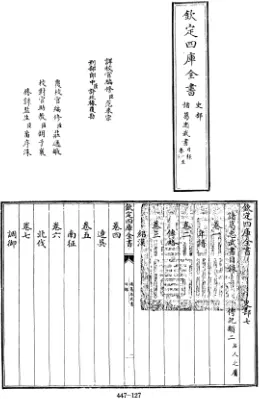 欽定四庫全書
史部
諸葛忠武書目錄
卷一至
詳校官編修臣范來宗
刑部郎中臣許兆椿覆勘
覆校官編修臣莊通敏
校對官助教臣胡予襄
謄錄監生臣
欽定四庫全書
史部七
諸葛忠武書目錄
傳記類二名人之屬
卷一
年譜
卷二
傳略
卷三
紹漢
欽定四庫全書
卷四
連吳
卷五
南征
卷六
北伐
卷七
調御
447-127